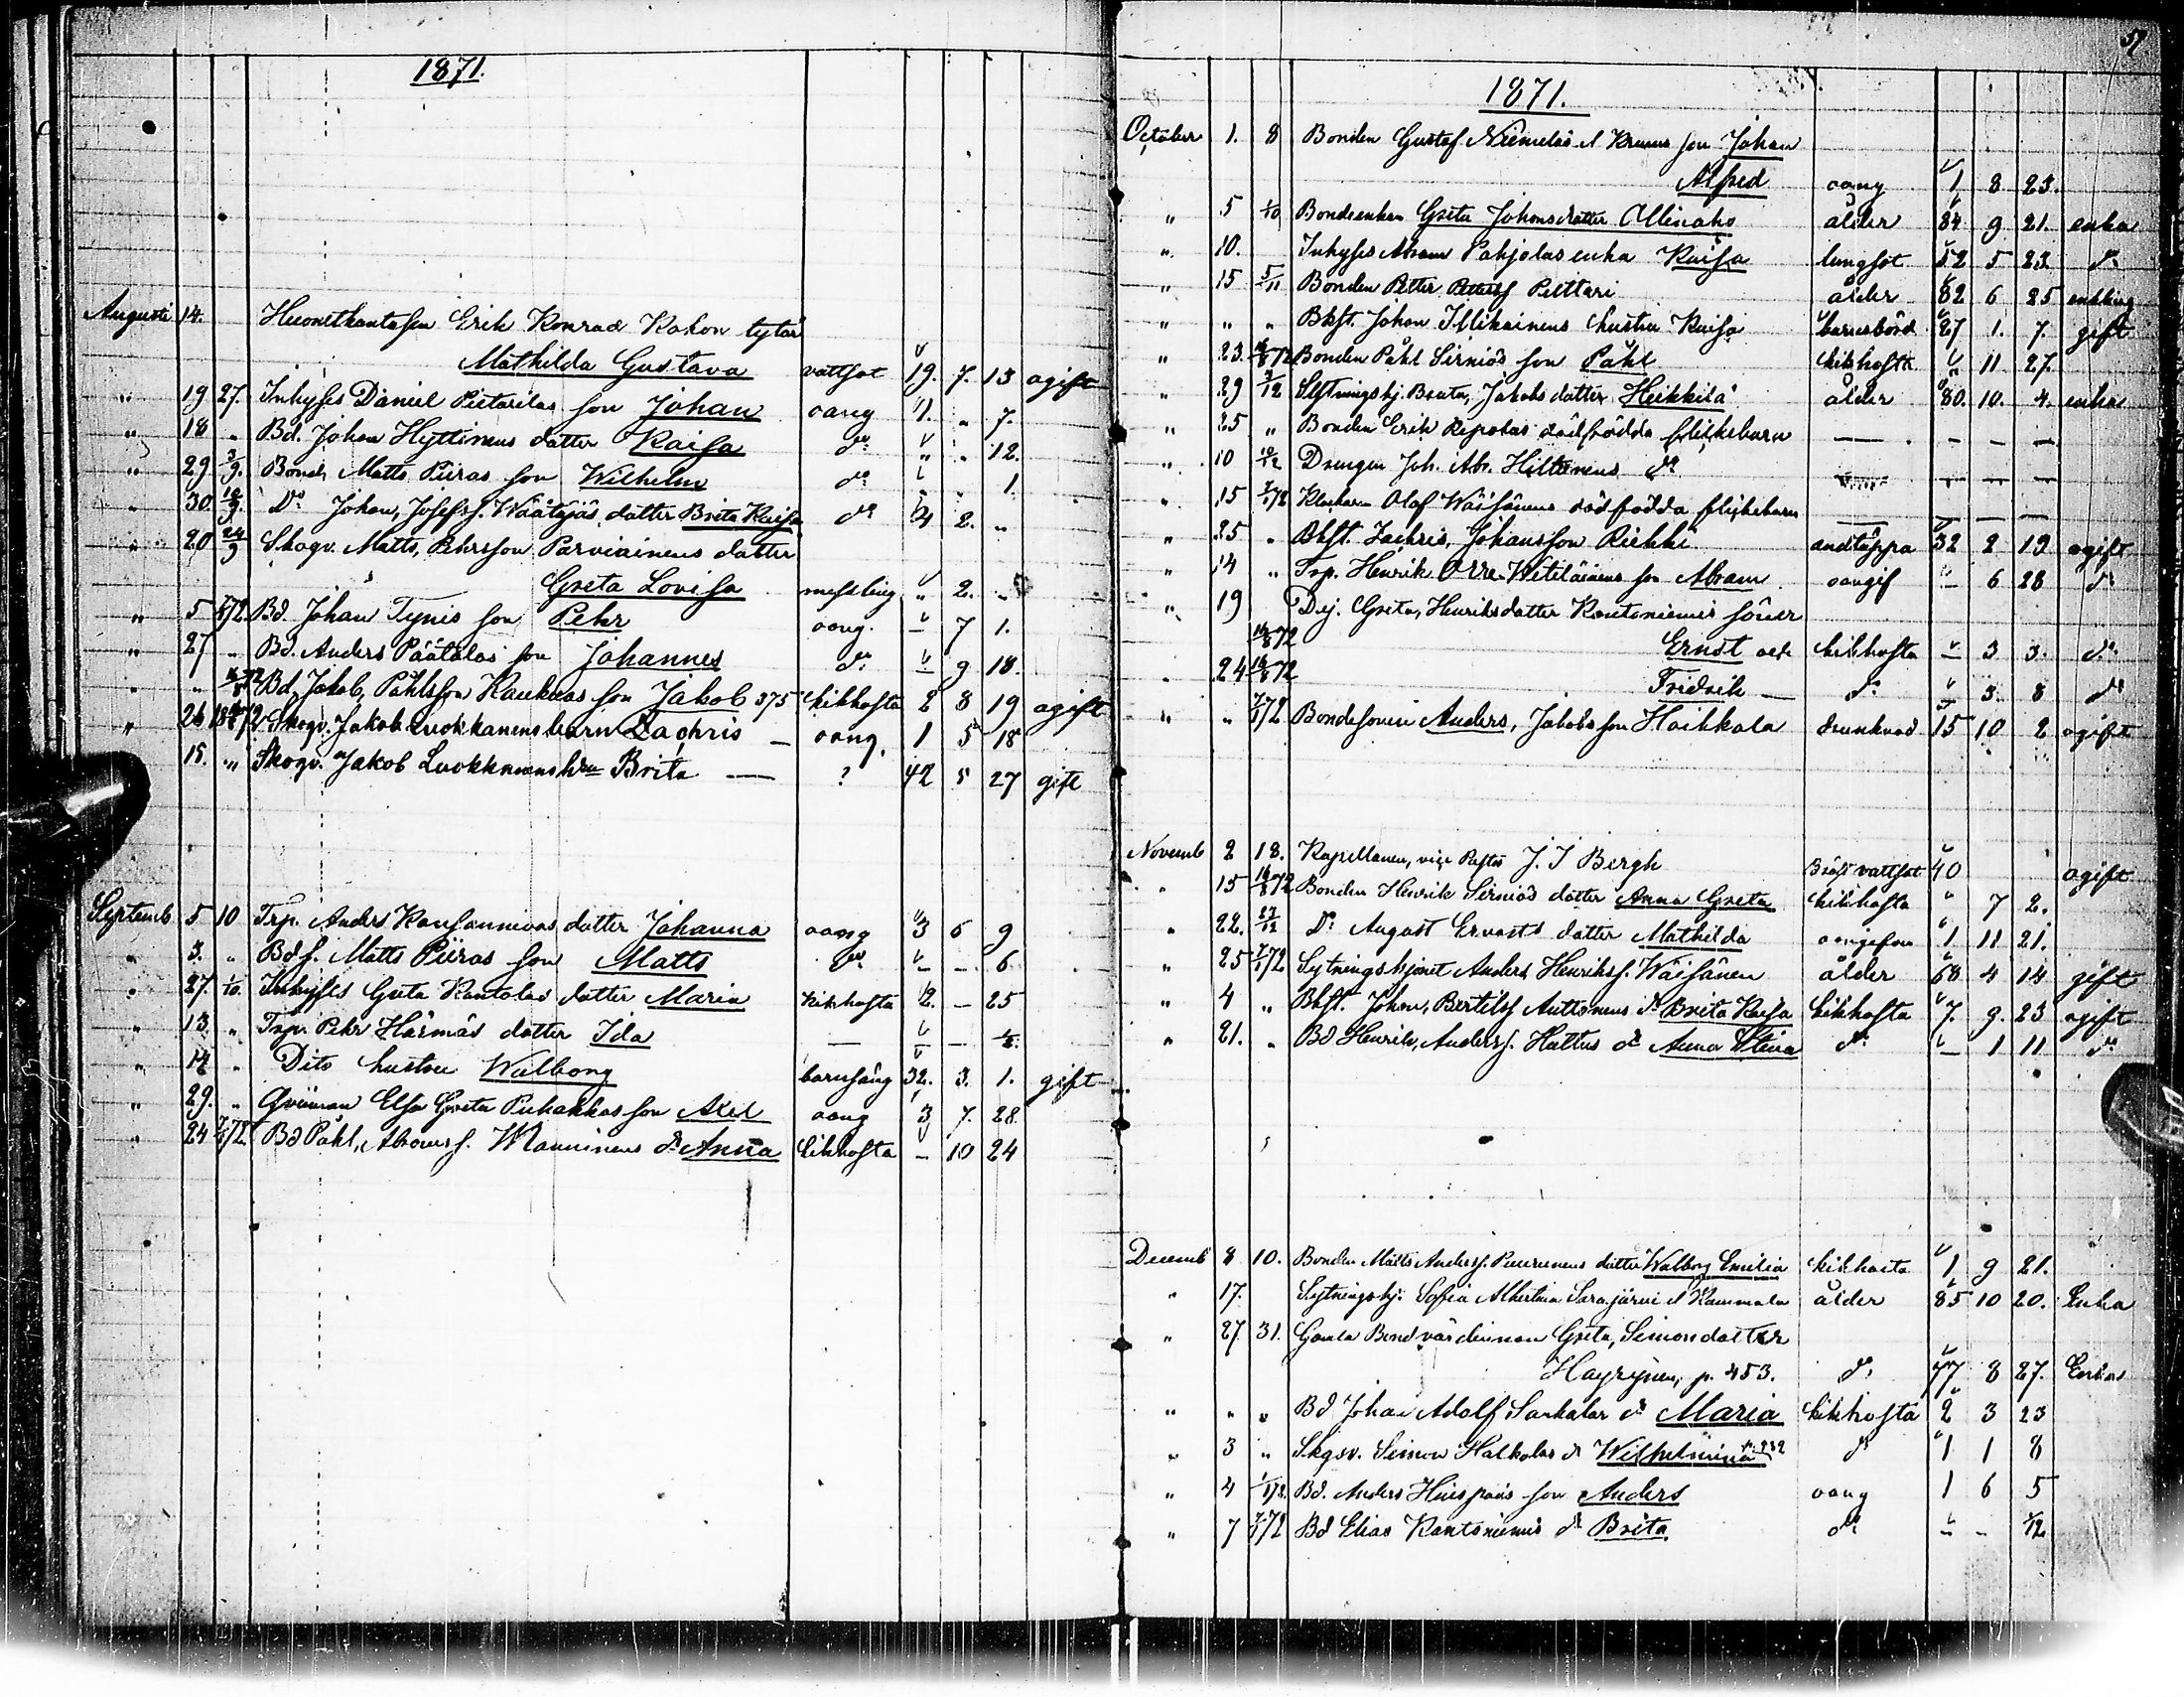 1871.
Augusti 14. Erik Konrad Kokon tytär
Mathilda Gustava vattsot 19. 7. 13 ogift
" 19 27. Inhyses Daniel Pietarilas son Johan oang 1. " 7.
" 18 " Bd. Johan Hyttinens dotter Kaisa do " " 12.
" 29 3/9. Bond. Matts Piiras son Wilhelm do " " 1.
" 30. 10/9. Do Johan, Josefss. Wäätäjäs dotter Brita Kaisa do 4 2. "
" 20 24/9 Skogv. Matts, Pehrsson Parviainens dotter
Greta Lovisa messling " 2. "
" 5 1/72 Bd. Johan Tynis son Pehr oang. – 7 1.
" 27 " Bd. Anders Päätalos son Johannes do – 9 18.
" " Bd. Jakob, Påhlsson Kaukuas son Jakob 375 kikhosta 2 8 19 ogift
" 24 Skogv. Jakob Luokkanens barn Zachris — oang. 1 5 18
15. " Skogv. Jakob Luokkanens hu Brita — ? 42 5 27 gift
Septemb. 5 10 Trp. Anders Kansannivas dotter Johanna oang 3 6 9
" 3. " Bdf. Matts Piiras son Matts do – – 6
" 27. 1/10. Inhyses Greta Kantolas dotter Maria kikhosta 2. – 25
" 13. " Trp. Pehr Härmäs dotter Ida — – – ½.
" 14 " Dito hustru Walborg barnsäng 32. 3. 1. gift
" 29. " Qvinnan Elsa Greta Puhakkas son Axel oang 3 7. 28
" 24 7/1 72 Bd Påhl, Abramss. Manninens dr Anna kikhosta – 10 24
57
1871.
October 1. 8 Bonden Gustaf Niemeläs son Johan
Alfred oang 1 8 23.
" 5 1/10 Bondeenkan Greta Johansdotter Ollinaho ålder 84 9 21. enka
" 10. Inhyses Abram Pohjolas enka Kaisa lungsot 52 5 23 do
" 15 5/11 Bonden Petter Piettari ålder 82 6 25 enkling
" " " Bkst. Johan Illikainens hustru Kaisa barnsbörd 27 1. 7. gift
" 23. 16/8 72 Bonden Påhl Sirniös son Påhl kikhosta " 11 27.
" 29 3/12 Sytningshj. Beata, Jakobsdotter Heikkilä ålder 80. 10. 4. enka
" 25 " Bonden Erik Repolas dödfödda flickebarn — – – –
" 10 10/12 Drengen Joh. Abr. Hiltunens do – – –
" 15 7/1 72 Klockaren Olof Wäisänens dödfödda flickebarn — — —
" 25 " Bkst. Zachris, Johansson Riekki andtäppa 32 2 19 ogift
" 14 " Trp. Henrik Orre-Witiläinens son Abram oangif – 6 28 do
" 19 Dej. Greta, Henriksdotter Kantoniemis söner
16/8 72 Ernst och kikhosta – 3 3. do
" 24 16/8 72 Fridrik — do " 3. 8 do
" " 7/1 72 Bondesonen Anders, Jakobsson Haikkala drunknad 15 10 2 ogift
Novemb 2 18. Kapellanen, vice Pastor J. I Bergh Bröst vattsot 40 ogift
" 15 16/8 72 Bonden Henrik Sirniös dotter Anna Greta kikhosta " 7 2.
" 22. 27/12 Do August Ervasts dotter Mathilda oangifven 1 11 21.
" 25 7/1 72 Sytningshjonet Anders Henrikss. Wäisänen ålder 68 4 14 gift
" 4 " Bkst. Johan, Bertilss Auttonens dr Brita Kaisa kikhosta 7. 9. 23 ogift
" 21. " Bd Henrik, Anderss. Hattus dr Anna Stina do – 1 11 do
Decemb 8 10. Bonden Matts Anderss. Puurunens dotter Walborg Emilia kikhosta 1 9 21.
" 17. Sytningshj. Sofia Albertina Sarajärvi ålder 85 10 20. Enka
" 27 31. Gamla Bondvärdinnan Greta, Simonsdotter
Hayrynen, p. 453. do 77 8 27. Enka
" " " Bd Johan Adolf Sarkalas dr Maria kikhosta 2 3 23
" 3 " Skgsv. Simon Halkolas dr Wilhelmina do 1 1 8
" 4 1/1 72. Bd. Anders Huispääs son Anders oang 1 6 5
" 7 7/1 72 Bd Elias Kantoniemis dr Brita. do – – ½